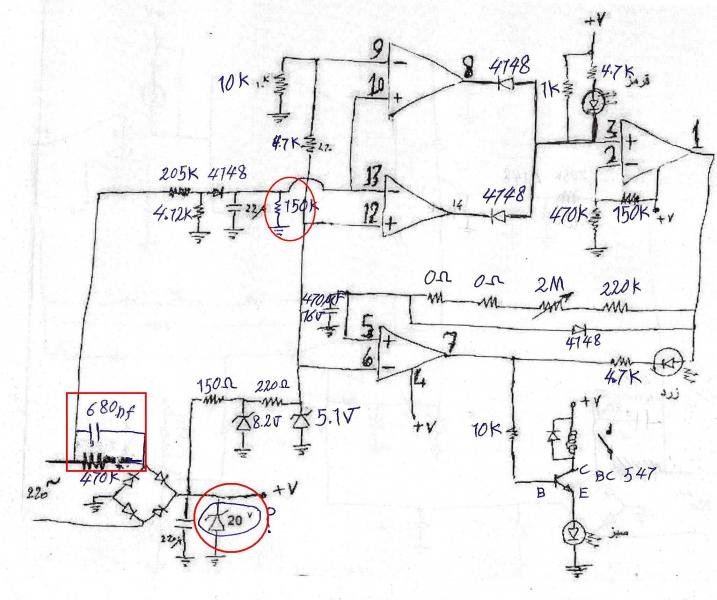 +V
9
8
4148
4.7K
قرمز
10K
10
1K
3
1
2
4.7K
205K
4148
13
14
4148
4.12K
22μ
150K
12
470K
150K
+V
0Ω
0Ω
2M
220K
16V
5
7
4148
6
4
4.7K
زرد
150Ω
220Ω
+V
680nf
8.2V
5.1V
+V
10K
470K
C
BC 547
220~
+V
B
E
20 V
?
220μ
سبز